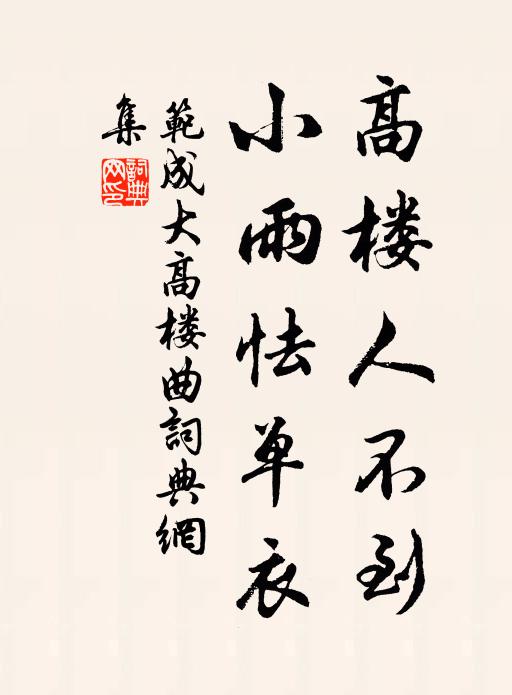 高楼人不到
小雨怯单衣
範成大高楼曲詞典網
集
詞典
网印